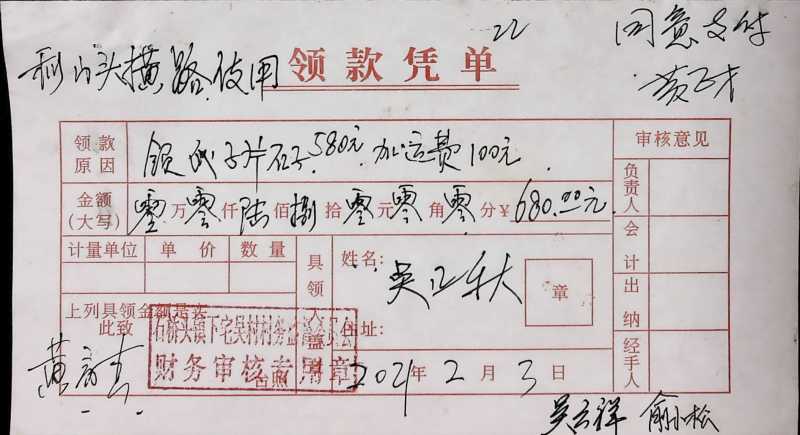 22
同意支付
利山头横路使用
领款凭单
领款原因
领 片石子580元 加运费100元
审核意见
金额(大写)
零万零仟陆佰捌拾零元零角零分¥680.00元
负责人
计量单位 单价 数量
具领人盖章
姓名:
吴正秋
章
会计
上列具领金额是实
此致
住址:
出纳
石桥头镇下宅吴村村务监督委员会
财务审核专用章
台照
2021年2月3日
经手人
吴云祥 俞小松